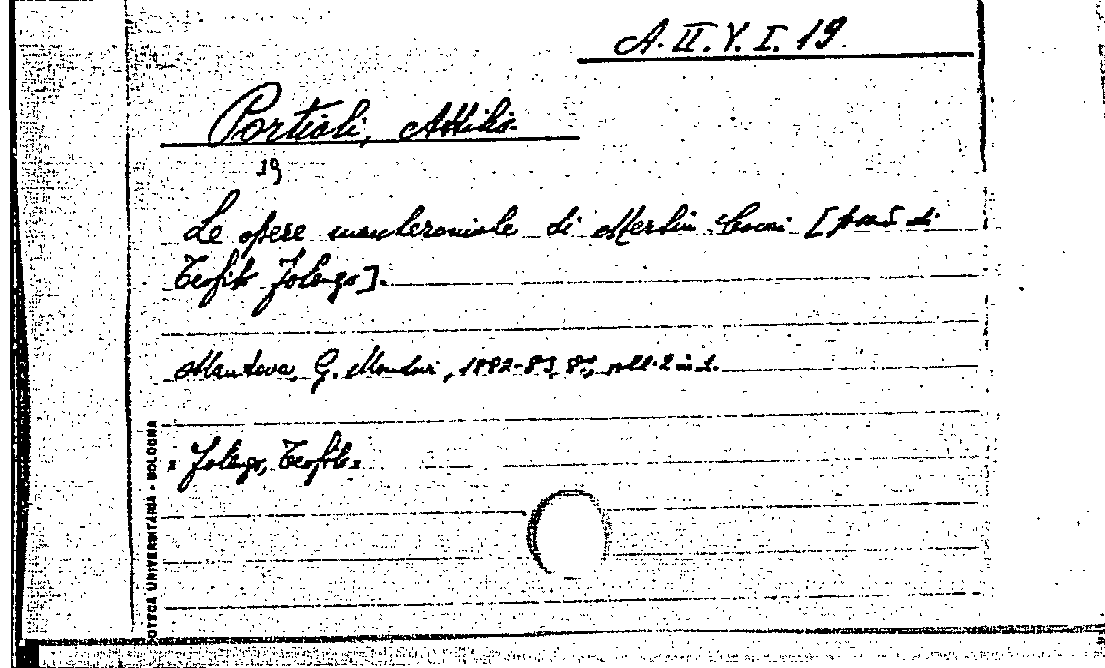 A. II. Y. I. 19.
Portioli, Attilio.
19
Le opere maccheroniche di Merlin Cocai [pseud. di
Teofilo Folengo].
Mantova, G. Mondovi, 1882-83, 89, voll. 2 in 1.
Folengo, Teofilo
OTECA UNIVERSITARIA - BOLOGNA